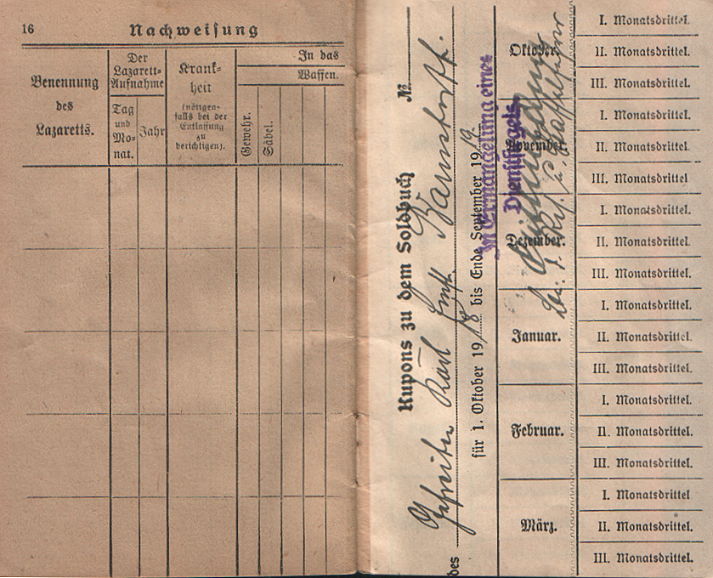 16
Nachweisung
Benennung
des
Lazaretts.
Der
Lazarett-
Aufnahme
Tag
und
Mo-
nat.
Jahr
Krank-
heit
(nötigen-
falls bei der
Entlassung
zu
berichtigen).
In das
Waffen.
Gewehr.
Säbel.
Kupons zu dem Soldbuch
№
des
Gefreiten Karl
für 1. Oktober 1918 bis Ende September 1919
In Ermangelung eines
Dienstsiegels
Oktober.
I. Monatsdrittel.
II. Monatsdrittel.
III. Monatsdrittel.
November.
I. Monatsdrittel.
II. Monatsdrittel.
III. Monatsdrittel.
Dezember.
I. Monatsdrittel.
II. Monatsdrittel.
III. Monatsdrittel.
Januar.
I. Monatsdrittel.
II. Monatsdrittel.
III. Monatsdrittel.
Februar.
I. Monatsdrittel.
II. Monatsdrittel.
III. Monatsdrittel.
März.
I. Monatsdrittel
II. Monatsdrittel.
III. Monatsdrittel.